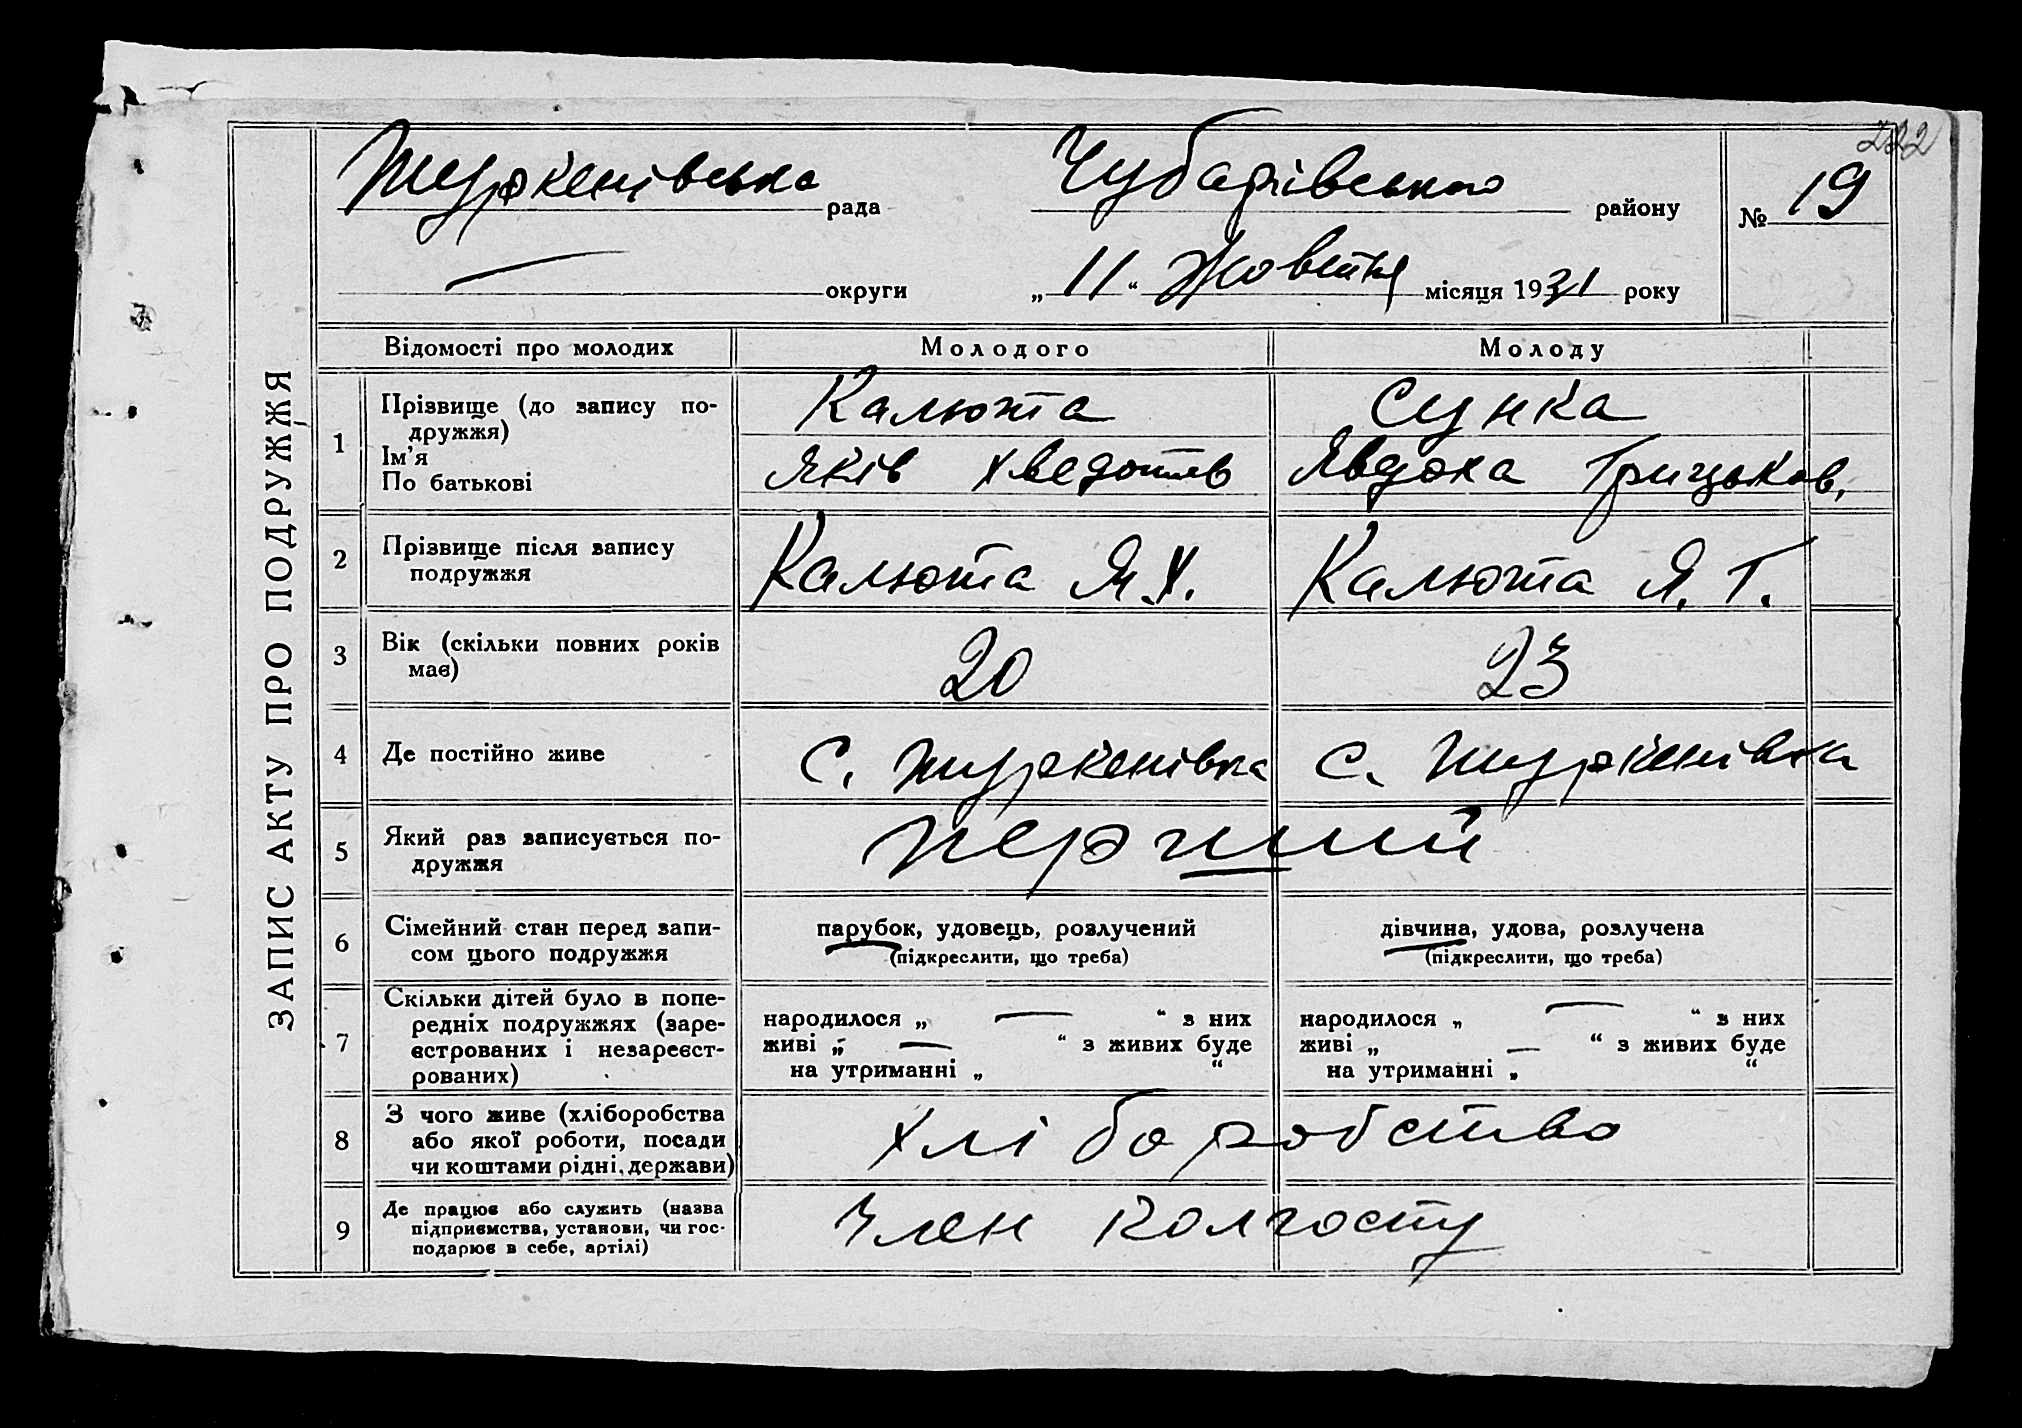 222
Туркенівська рада Чубарівського району № 19
округи „ 11 “ Жовтня місяця 1931 року
ЗАПИС АКТУ ПРО ПОДРУЖЖЯ
Відомості про молодих Молодого Молоду
1 Прізвище (до запису по-
дружжя)
Калюта Сунка
Ім’я
По батькові
Яків Хведотів Явдоха Грицьков.
2 Прізвище після запису
подружжя
Калюта Я.Х. Калюта Я. Г.
3 Вік (скільки повних років
має)
20 23
4 Де постійно живе с. Туркенівка с. Туркенівка
5 Який раз записується по-
дружжя
перший
6 Сімейний стан перед запи-
сом цього подружжя
парубок, удовець, розлучений дівчина, удова, розлучена
(підкреслити, що треба) (підкреслити, що треба)
7 Скільки дітей було в попе-
редніх подружжях (заре-
єстрованих і незареєст-
рованих)
народилося „ — “ з них народилося „ — “ з них
живі „ — “ з живих буде живі „ — “ з живих буде
на утриманні „ “ на утриманні „ “
8 З чого живе (хліборобства
або якої роботи, посади
чи коштами рідні, держави)
хліборобство
9 Де працює або служить (назва
підприємства, установи, чи гос-
подарює в себе, артілі)
Член колгоспу